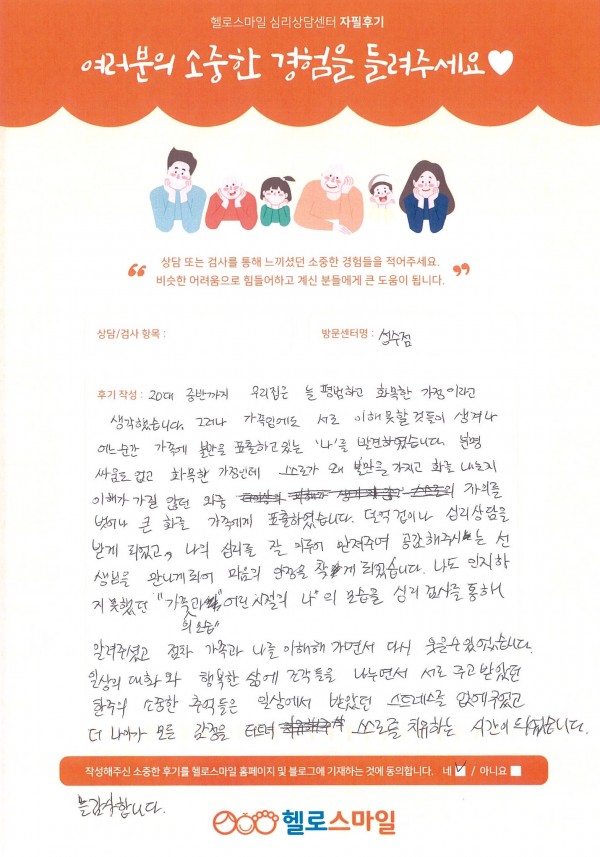 헬로스마일 심리상담센터 자필후기
여러분의 소중한 경험을 들려주세요♥
“ 상담 또는 검사를 통해 느끼셨던 소중한 경험들을 적어주세요.
비슷한 어려움으로 힘들어하고 계신 분들에게 큰 도움이 됩니다. ”
상담/검사 항목 : 방문센터명 : 성수점
후기 작성 : 20대 중반까지 우리집은 늘 평범하고 화목한 가정이라고
생각했습니다. 그러나 가족임에도 서로 이해 못할 것들이 생겨나
어느순간 가족에 불만을 표출하고 있는 '나'를 발견하였습니다. 분명
싸움도 없고 화목한 가정인데 스스로가 왜 불만을 가지고 화를 내는지
이해가 가질 않던 와중 의
벗어나 큰 화를 가족에게 표출하였습니다. 이나 심리상담을
받게 되었고, 나의 심리를 잘 어루어 만져주며 공감해주시는 선
생님을 만나게 되어 마음의 안정을 찾게 되었습니다. 나도 인지하
지 못했던 "가족과 "어린시절의 나"의 모습을 심리 검사를 통해
의 모습"
알려주셨고 점차 가족과 나를 이해해 가면서 다시 웃을 수 있었습니다.
일상의 대화와 행복한 삶에 조각들을 나누면서 서로 주고 받았던
한주의 소중한 추억들은 일상에서 받았던 스트레스를 없애주었고
더 나아가 모든 감정을 터트려 스스로를 치유하는 시간이 되었습니다.
작성해주신 소중한 후기를 헬로스마일 홈페이지 및 블로그에 기재하는 것에 동의합니다. 네 / 아니요
감사합니다.
헬로스마일